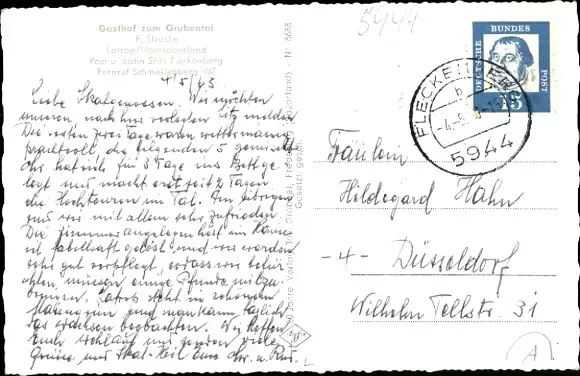 5944
Gasthof zum Grubental
F. Stracke
Latrop/Hochsauerland
Post u. Bahn 5944 Fleckenberg
Fernruf Schmallenberg 107
4/5/63.
Liebe Skatgenossen. Wir möchten
unseren, nach hier verlegten Sitz melden
Die ersten zwei Tage waren wettermässig
prachtvoll, die folgenden 5 gemischt
Chr. hat sich für 3 Tage ins Bett ge
legt und macht erst seit 2 Tagen
die Hochtouren im Tal. Im übrigen
sind wir mit allem sehr zufrieden.
Die Zimmerangelegenheit im Hause
ist fabelhaft gelöst und wir werden
sehr gut verpflegt, sodass wir befürch
ten, müssen einige Pfunde mitzu
bringen. Latrop steht im schönsten
und man kann täglich
das Wachsen beobachten. Wir hoffen
Euch wohlauf und senden viele
Grüsse und Skat-Heil Eure Chr. u. Rud.
Nr. 8688
Gesetzl. gesch.
DEUTSCHE BUNDESPOST
15
FLECKENBERG
b
5944
Fräulein
Hildegard Hahn
-4- Düsseldorf
Wilhelm Tellstr. 31
A